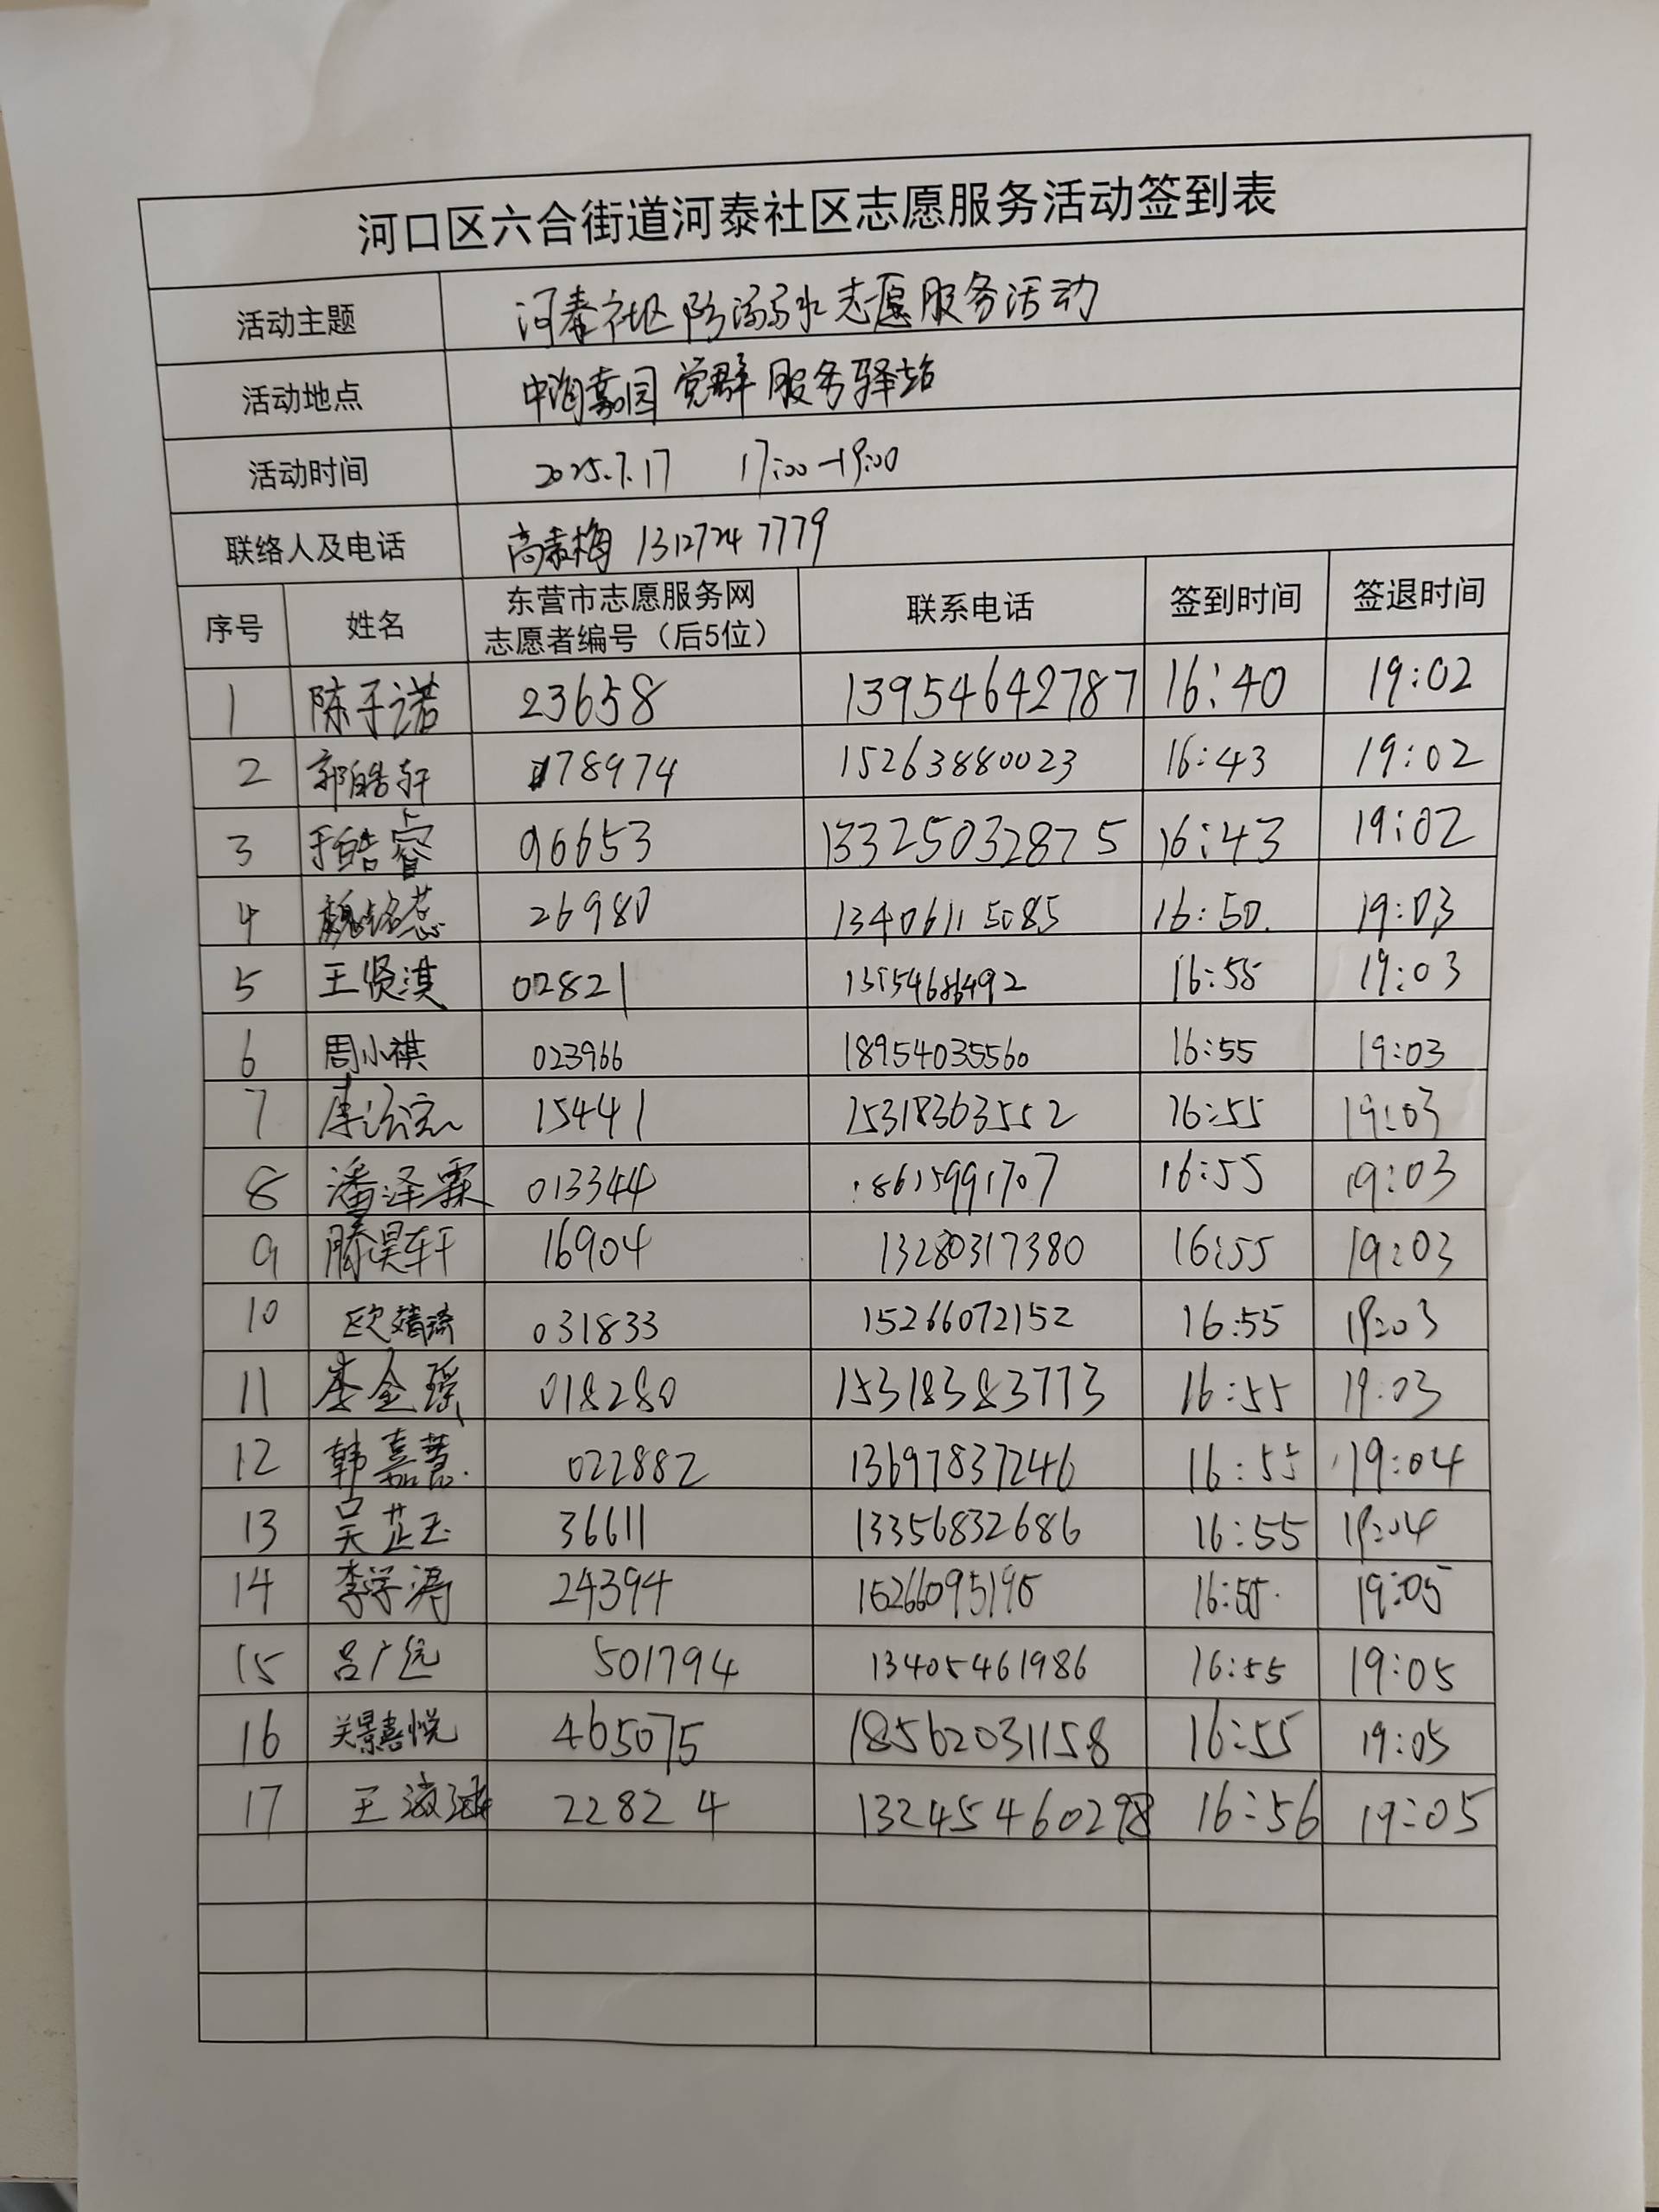 河口区六合街道河泰社区志愿服务活动签到表
活动主题 河泰社区防溺水志愿服务活动
活动地点 中海嘉园党群服务驿站
活动时间 2025.7.17 17:00-19:00
联络人及电话 高素梅 13127247779
序号 姓名 东营市志愿服务网志愿者编号（后5位） 联系电话 签到时间 签退时间
1 陈于诺 23658 13954642787 16:40 19:02
2 郭皓轩 178974 15263880023 16:43 19:02
3 于皓睿 96653 13325032875 16:43 19:02
4 魏铭蕊 26980 13406115085 16:50. 19:03
5 王贤淇 02821 16:55 19:03
6 周小祺 023966 18954035560 16:55 19:03
7 15441 15318363552 16:55 19:03
8 潘泽霖 013344 18615991707 16:55 19:03
9 滕昊轩 16904 13280317380 16:55 19:03
10 欧婧琦 031833 15266072152 16:55 19:03
11 李金瑶 018280 15318383773 16:55 19:03
12 韩嘉 022882 13697837246 16:55 19:04
13 吴芷玉 36611 13356832686 16:55 19:04
14 李学涛 24394 15266095195 16:55. 19:05
15 吕广远 501794 13405461986 16:55 19:05
16 关景嘉悦 465075 18562031158 16:55 19:05
17 王淑涵 22824 13245460298 16:56 19:05